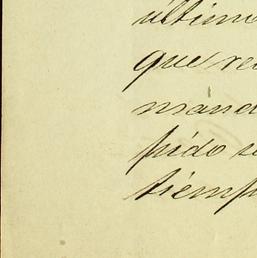 último
que re
mánd
pido s
tiemp